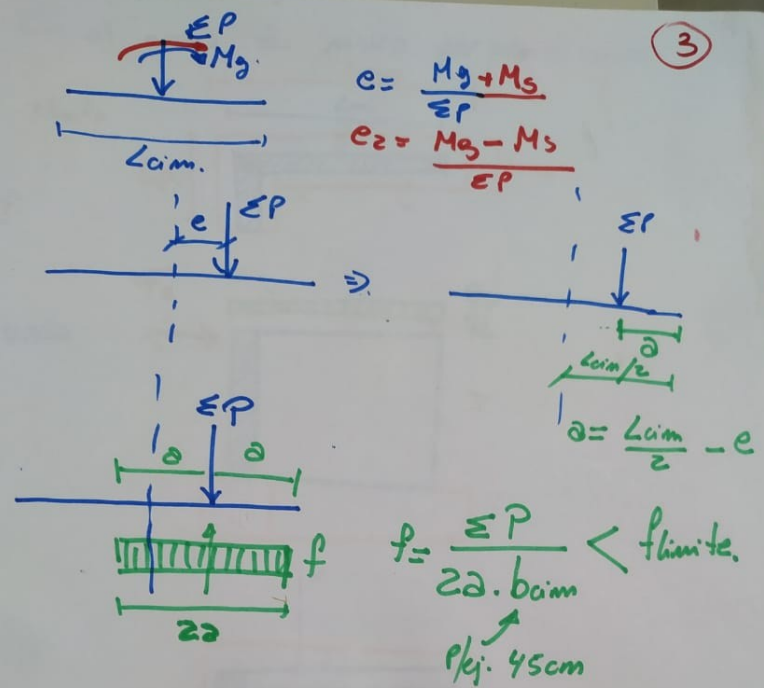 3
ΣP
Mg.
e = Mg + Ms / ΣP
e2 = Mg - Ms / ΣP
Lcim.
e
ΣP
⇒
ΣP
a
Lcim/2
a = Lcim / 2 - e
ΣP
a a
f
2a
f = ΣP / 2a . bcim < flimite.
p/ej. 45cm